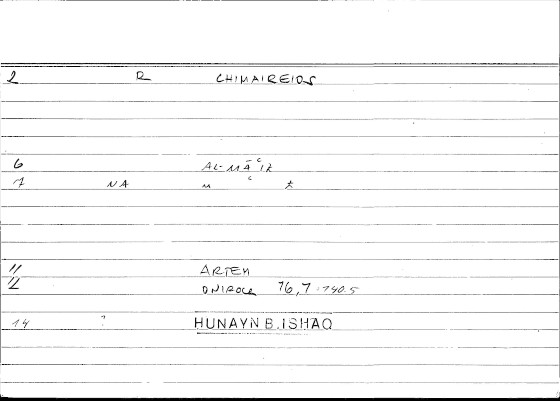 2 R CHIMAIREIOS
6 AL-MĀʿIZ
7 NA m ʿ z
11 ARTEM
12 ONIROCR 76,7 : 140.5
14 ? HUNAYN B. ISHAQ